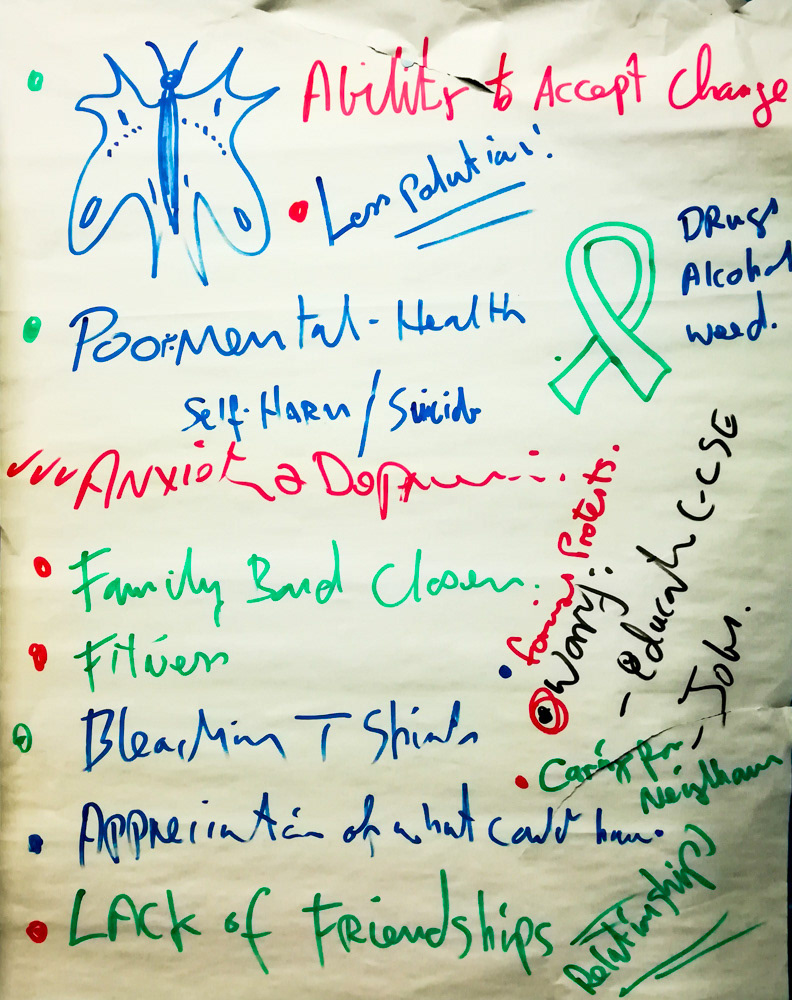 Ability to Accept Change
Less Polution!
Drugs
Alcohol
weed.
Poor-Mental-Health
Self-Harm/Suicide
Anxiety & Depression.
Family Bond Closer.
Fitness
Bleaching T Shirts
Appreciation of what could have.
Lack of Friendships
Relationships
Protests.
Worry:
- Education GCSE
- Jobs.
Caring for
Neighbours